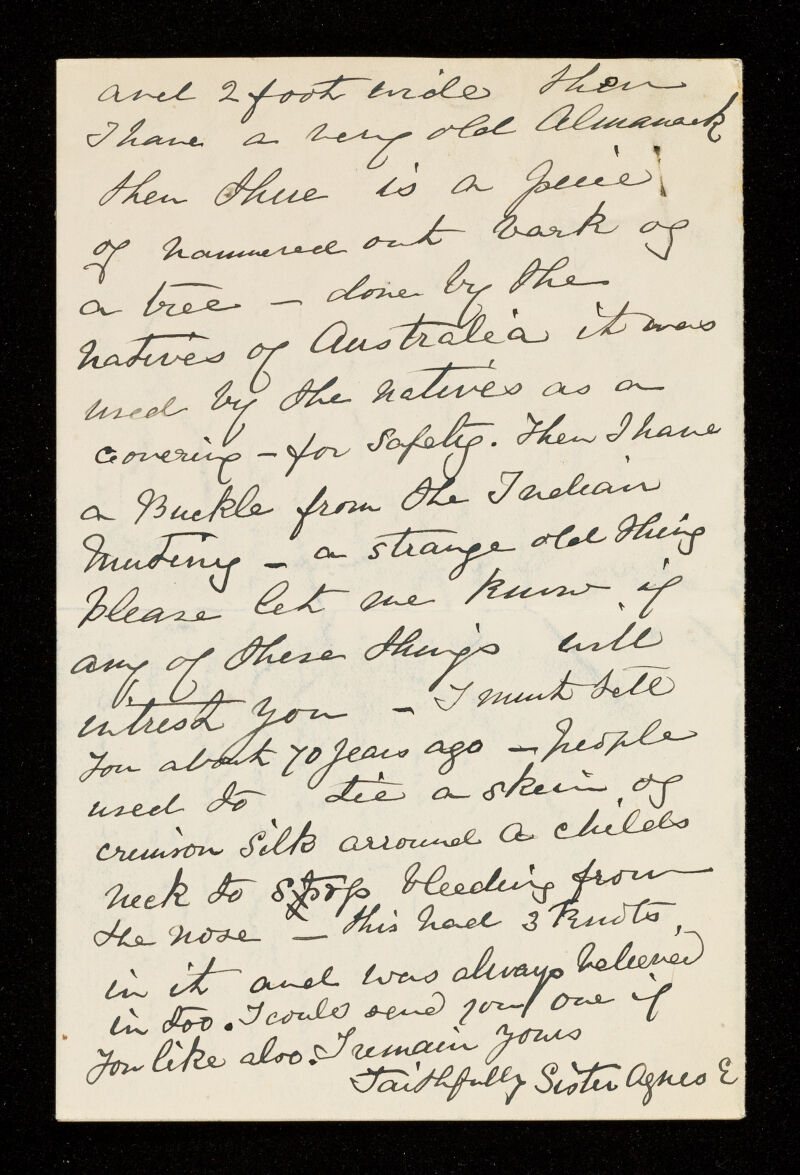 and 2 foot wide then
I have a very old Almanack
then there is a peice
of hammered out bark of
a tree – done by the
natives of Australia it was
used by the natives as a
covering – for safety. Then I have
a Buckle from the Indian
Mutiny – a strange old thing
please let me know if
any of these things will
intrest you – I must tell
you about 70 years ago – people
used to tie a skein of
crimson silk arround a childs
neck to stop bleeding from
the nose – this had 3 knots
in it and was always believed
in too. I could send you one if
you like also. I remain yours
Faithfully Sister Agnes E